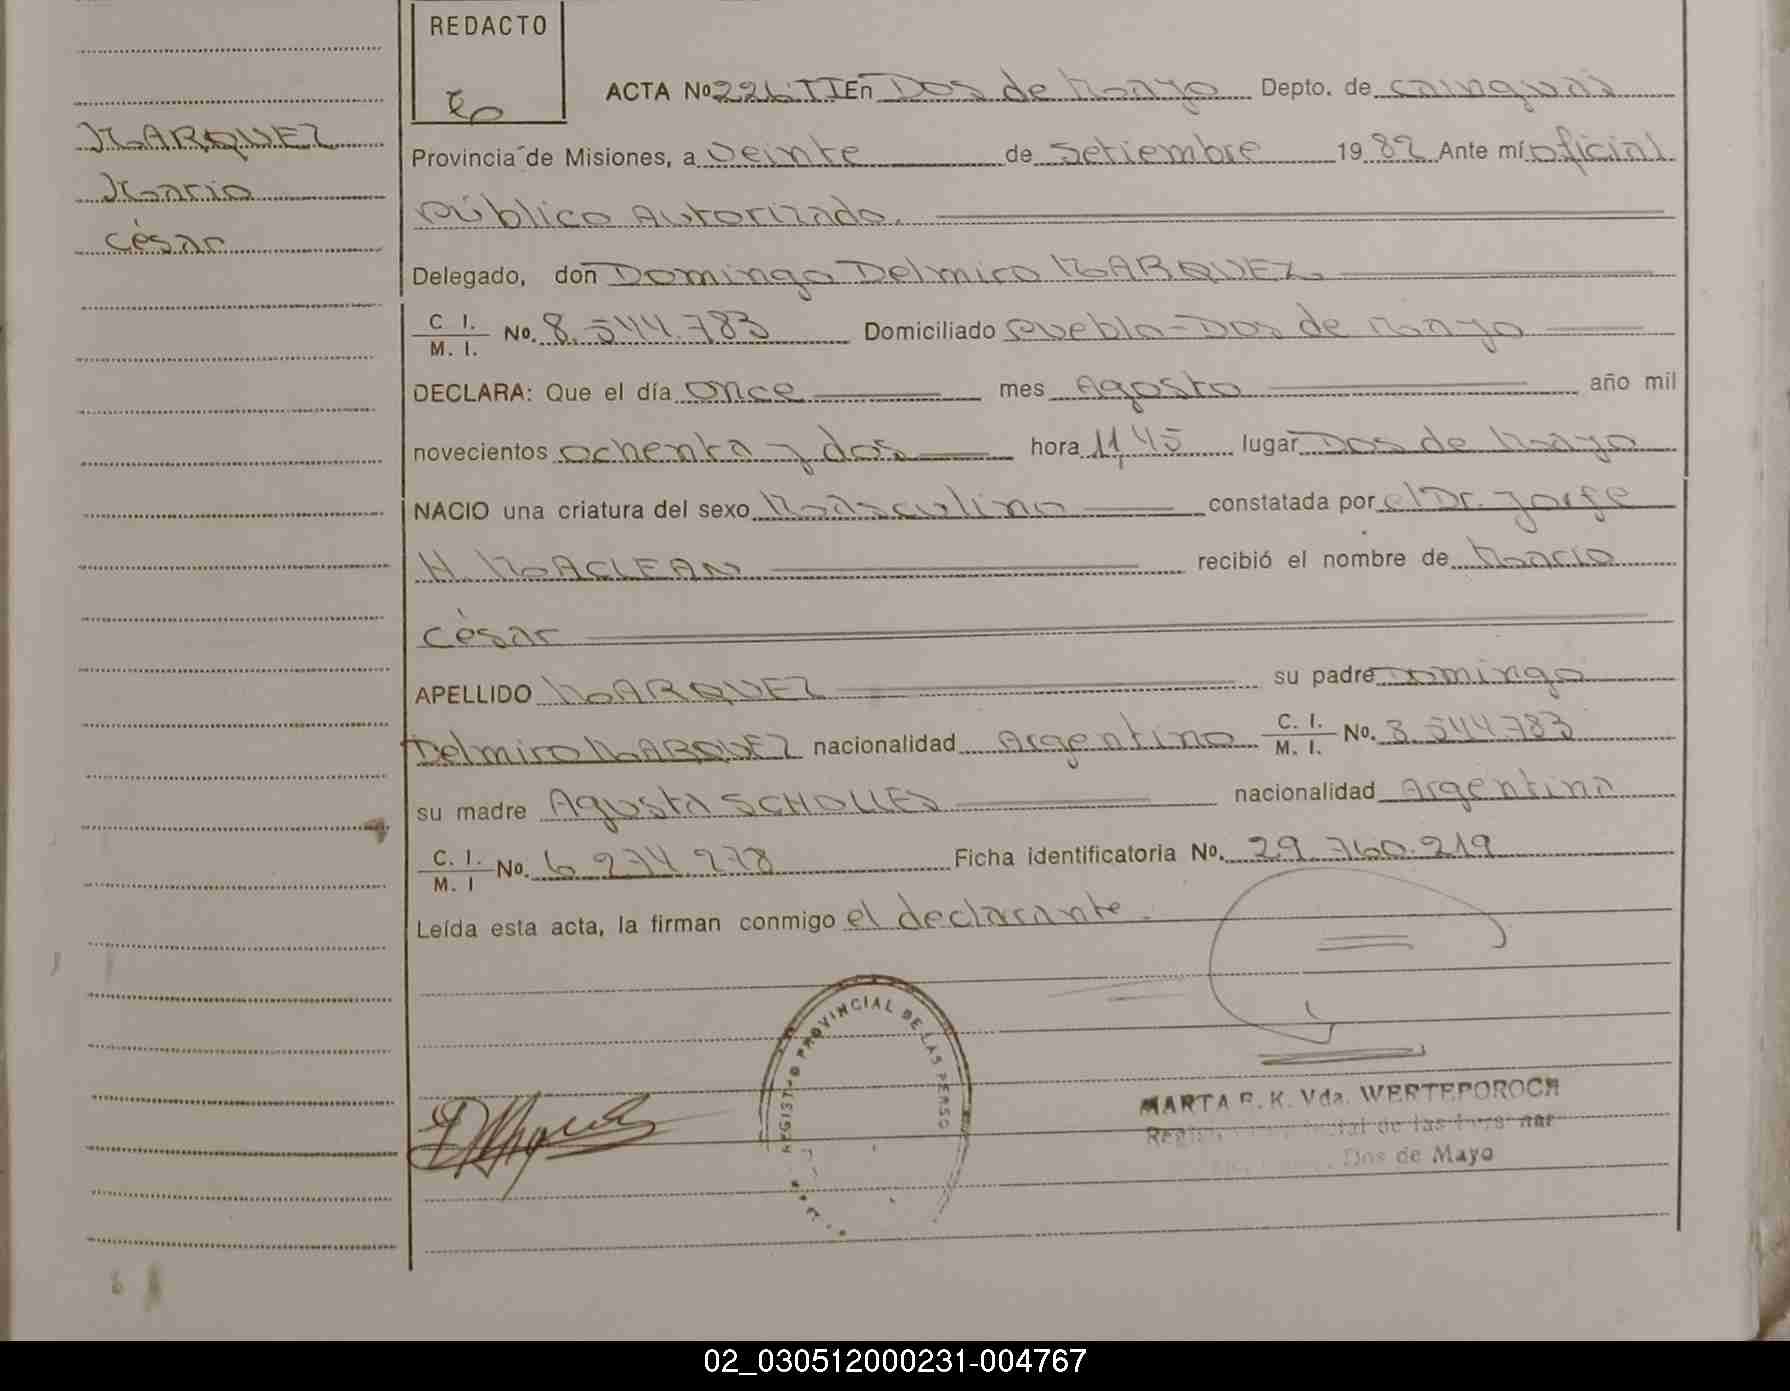 REDACTO
ACTA No 226 TI En Dos de Mayo Depto. de Cainguás
MARQUEZ
Provincia de Misiones, a Veinte de Setiembre 1982 Ante mí oficial
Mario
Público Autorizado.
César
Delegado, don Domingo Delmiro MARQUEZ
C. I. M. I. No. 8.544.783 Domiciliado Pueblo-Dos de Mayo
DECLARA: Que el día once mes Agosto año mil
novecientos ochenta y dos hora 11,45 lugar Dos de Mayo
NACIO una criatura del sexo Masculino constatada por el Dr. Jorge
H. MACLEAN recibió el nombre de Mario
César
APELLIDO MARQUEZ su padre Domingo
Delmiro MARQUEZ nacionalidad Argentino C. I. M. I. No. 8.544.783
su madre Agusta SCHOLLES nacionalidad Argentina
C. I. M. I No. 6.274.278 Ficha identificatoria No. 29.760.219
Leída esta acta, la firman conmigo el declarante.
REGISTRO PROVINCIAL DE LAS PERSO
MARTA E. K. Vda. WERTEPOROCH
Dos de Mayo
02_030512000231-004767